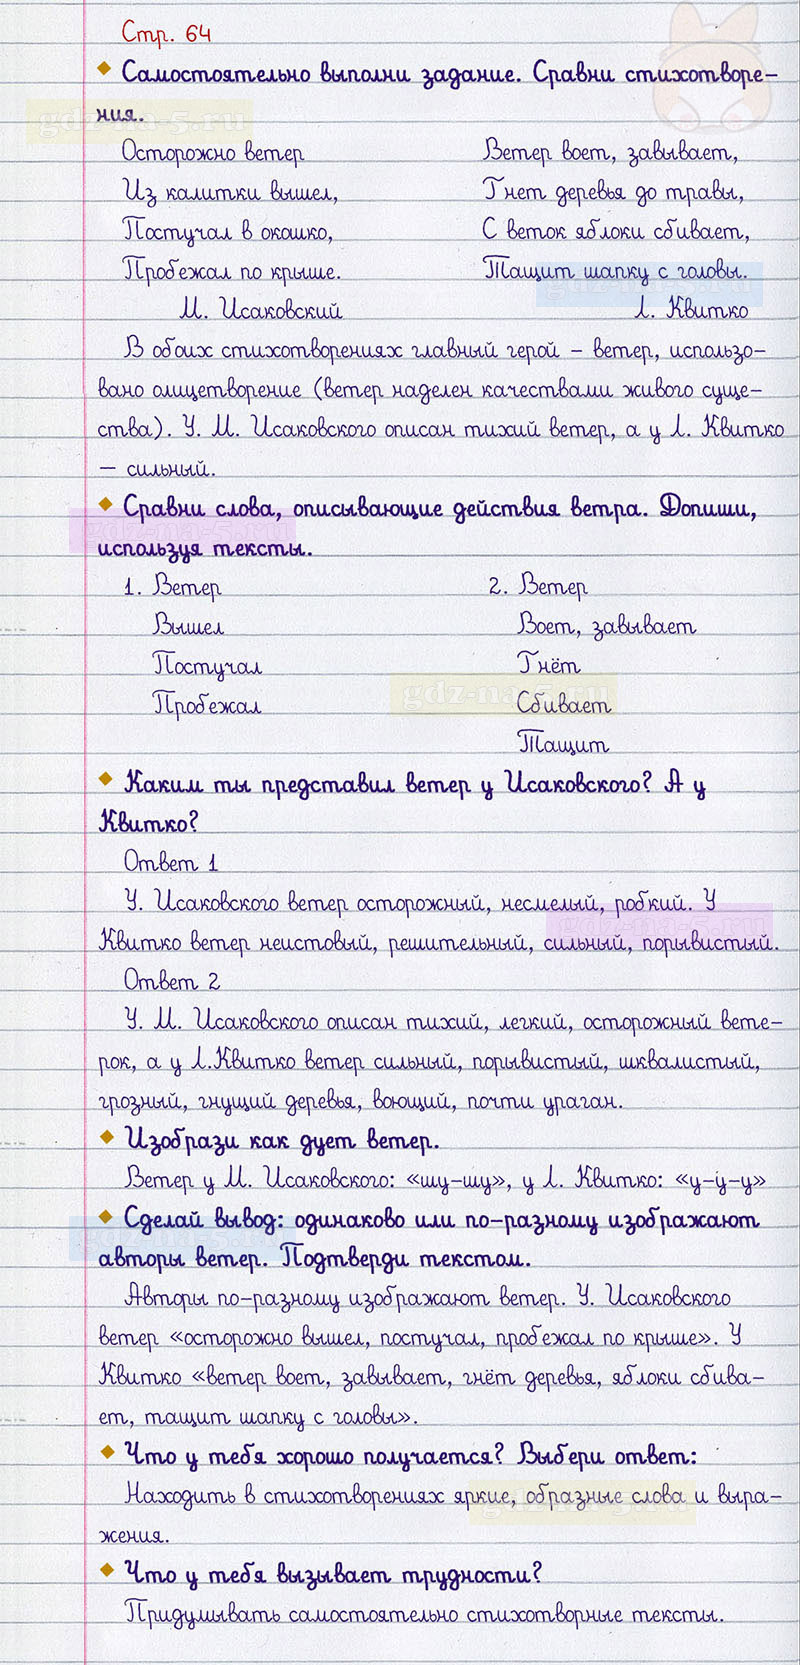 Стр. 64
Самостоятельно выполни задание. Сравни стихотворе-
ния.
gdz-na-5.ru
Осторожно ветер
Из калитки вышел,
Постучал в окошко,
Пробежал по крыше.
М. Исаковский
Ветер воет, завывает,
Гнет деревья до травы,
С веток яблоки сбивает,
Тащит шапку с головы.
gdz-na-5.ru
Л. Квитко
В обоих стихотворениях главный герой – ветер, использо-
вано олицетворение (ветер наделен качествами живого суще-
ства). У. М. Исаковского описан тихий ветер, а у Л. Квитко
– сильный.
Сравни слова, описывающие действия ветра. Допиши,
gdz-na-5.ru
используя тексты.
1. Ветер
Вышел
Постучал
Пробежал
2. Ветер
Воет, завывает
Гнёт
gdz-na-5.ru
Сбивает
Тащит
Каким ты представил ветер у Исаковского? А у
Квитко?
Ответ 1
У. Исаковского ветер осторожный, несмелый, робкий. У
gdz-na-5.ru
Квитко ветер неистовый, решительный, сильный, порывистый.
Ответ 2
У. М. Исаковского описан тихий, легкий, осторожный вете-
рок, а у Л.Квитко ветер сильный, порывистый, шквалистый,
грозный, гнущий деревья, воющий, почти ураган.
Изобрази как дует ветер.
Ветер у М. Исаковского: «шу-шу», у Л. Квитко: «у-у-у»
Сделай вывод: одинаково или по-разному изображают
gdz-na-5.ru
авторы ветер. Подтверди текстом.
Авторы по-разному изображают ветер. У. Исаковского
ветер «осторожно вышел, постучал, пробежал по крыше». У
Квитко «ветер воет, завывает, гнёт деревья, яблоки сбива-
ет, тащит шапку с головы».
Что у тебя хорошо получается? Выбери ответ:
Находить в стихотворениях яркие, образные слова и выра-
gdz-na-5.ru
жения.
Что у тебя вызывает трудности?
Придумывать самостоятельно стихотворные тексты.